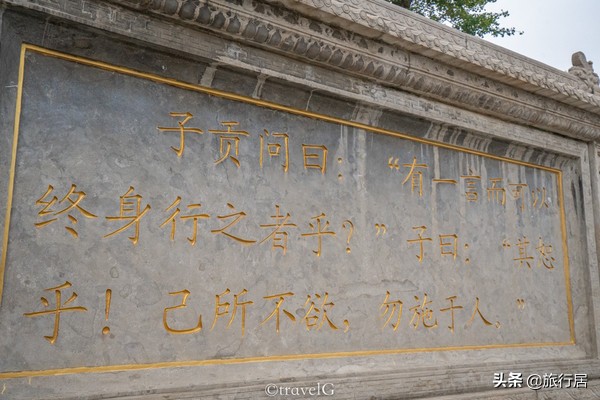 子贡问曰：“有一言而可以
终身行之者乎？”子曰：“其恕
乎！己所不欲，勿施于人。”
©travelG
头条 @旅行居